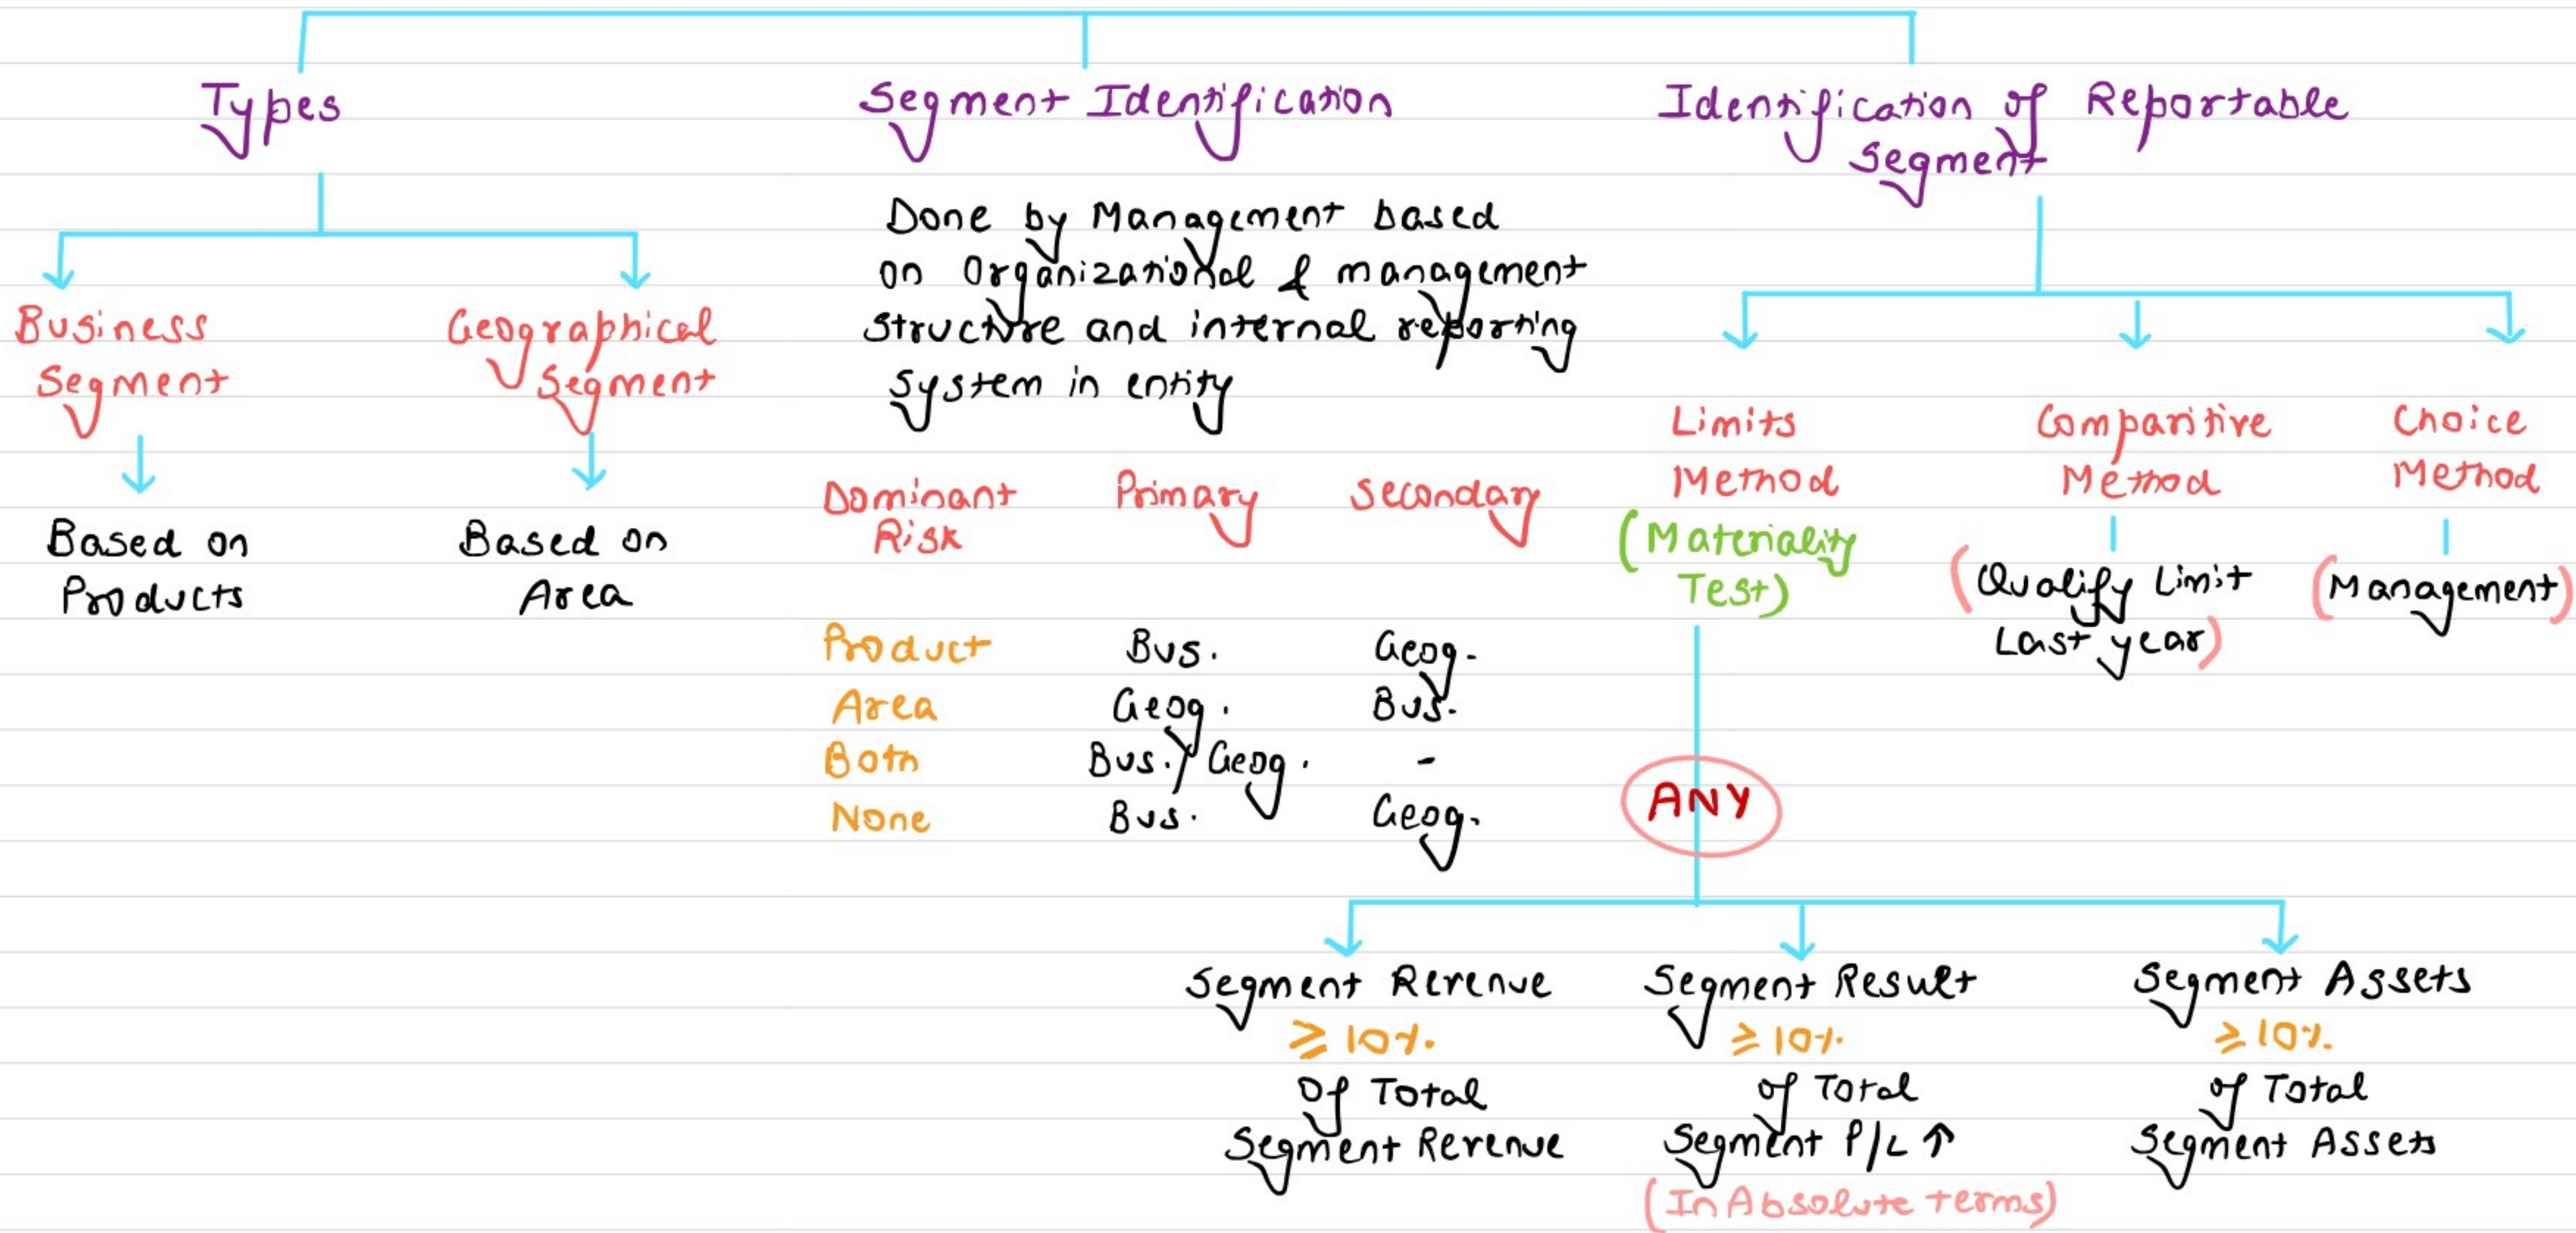 Types
Business
Segment
Based on
Products
Geographical
Segment
Based on
Area
Segment Identification
Done by Management based
on Organizational & management
structure and internal reporting
system in entity
Dominant Risk Primary Secondary
Product Bus. Geog.
Area Geog. Bus.
Both Bus./Geog. -
None Bus. Geog.
Identification of Reportable
Segment
Limits
Method
(Materiality
Test)
Comparitive
Method
(Qualify Limit
Last year)
Choice
Method
(Management)
ANY
Segment Revenue
≥ 10%
Of Total
Segment Revenue
Segment Result
≥ 10%
of Total
Segment P/L ↑
(In Absolute terms)
Segment Assets
≥ 10%
of Total
Segment Assets